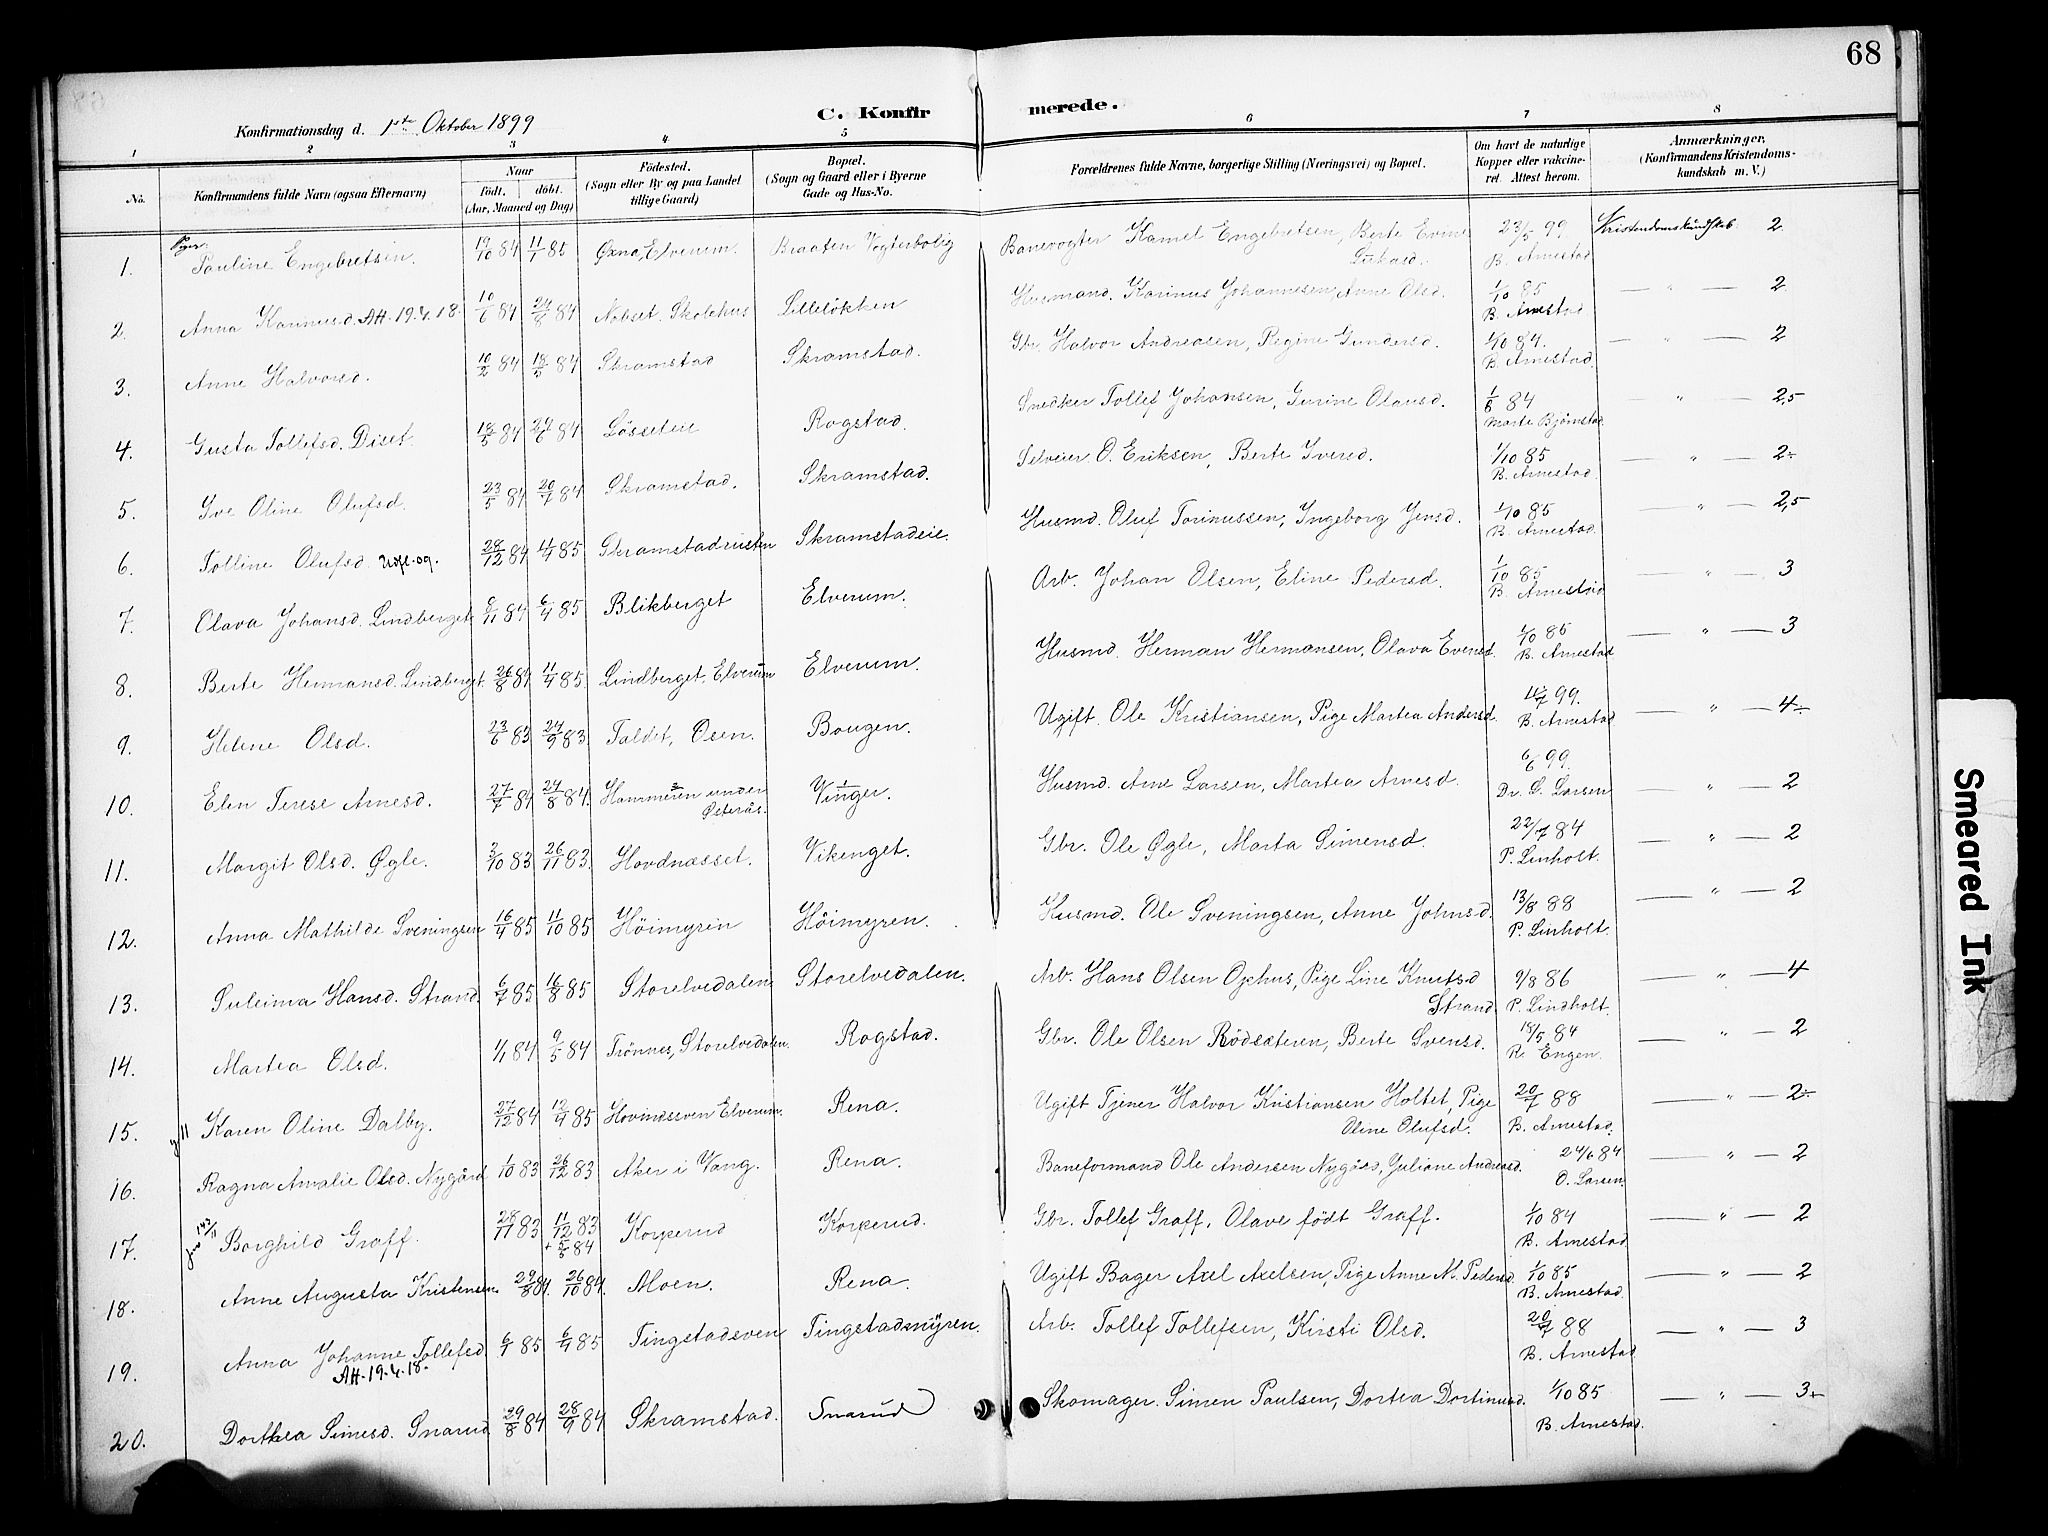 68
C. Konfirmerede.
Konfirmationsdag d. 1ste Oktober 1899
1 2 3 4 5 6 7 8
No. Konfirmandens fulde Navn (ogsaa Efternavn) Naar födt. döbt. (Aar, Maaned og Dag) Födested. (Sogn eller By og paa Landet tillige Gaard) Bopæl. (Sogn og Gaard eller i Byerne Gade og Hus-No. Forældrenes fulde Navne, borgerlige Stilling (Næringsvei) og Bopæl. Om havt de naturlige Kopper eller vaccineret. Attest herom. Anmærkninger. (Konfirmandens Kristendomskundskab m. V.)
Piger:
1. Pauline Engebretsen. 19/10 84 11/1 85 Øxna, Elverum. Braaten Vogterbolig Banevogter Kamel Engebretsen, Berte Evine Lukasd. 23/5 99 B. Arnestad Kristendomskundskab: 2
2. Anna Karinusd. Att. 19.4.18. 10/6 84 24/8 84 Nobset Skolehus Lilleløkken Husmand. Karinus Johannesen, Anne Olsd. 1/10 85 B. Arnestad — " — 2
3. Anne Halvorsd. 10/2 84 18/5 84 Skramstad Skramstad. Gbr. Halvor Andreasen, Regine Gundersd. 1/10 84. B. Arnestad. — " — 2
4. Gusta Tollefsd. Diset. 18/5 84 24/6 84 Løsseteie Rogstad. Snedker Tollef Johansen, Gurine Olausd. 1/8 84 Marte Bjørnstad " — 2,5
5. Gve Oline Olufsd. 23/5 84 20/7 84 Skramstad. Skramstad. Selveier O. Eriksen, Berte Iversd. 1/10 85 B. Arnestad. — " — 2-
6. Tolline Olufsd. 28/12 84 4/4 85 Skramstadeie. Husmd. Oluf Torinussen, Ingeborg Jensd. 1/10 85 B. Arnestad. — " — 2,5
7. Olava Johansd. Lindberget 8/11 84 6/4 85 Blikberget Elverum. Arb. Johan Olsen, Eline Pedersd. 1/10 85 B. Arnestad — " — 3
8. Berte Hermansd. Lindberget. 26/8 84 11/4 85 Lindberget, Elverum Elverum. Husmd. Herman Hermansen, Olava Evensd. 1/10 85 B. Arnestad — " — 3
9. Helene Olsd. 23/6 83 24/9 83 Taldet, Osen. Bougen. Ugift. Ole Kristiansen, Pige Martea Andersd. 11/7 99. B. Arnestad — " — 4-
10. Elen Terese Arnesd. 27/7 84 24/8 84. Hammeren under Østerås. Vinger. Husmd. Arne Larsen, Martea Arnesd. 6/6 99. Dr. C. Larsen — " — 2
11. Margit Olsd. Øgle. 3/10 83 26/11 83. Hovdnæsset. Vikenget. Gbr. Ole Øgle, Marta Simensd. 22/7 84 P. Linholt. — " — 2
12. Anna Mathilde Sveningsen 16/4 85 11/10 85 Höimyren Höimyren. Husmd. Ole Sveningsen, Anne Johnsd. 13/8 88 P. Linholt. — " — 2
13. Puleima Hansd. Strand 6/7 85 16/8 85 Storelvedalen Storelvedalen. Arb. Hans Olsen Ophus, Pige Line Knutsd Strand. 9/8 86 P. Lindholt. — " — 4
14. Martea Olsd. 1/1 84 9/5 84 Trönnes, Storelvedalen. Rogstad. Gbr. Ole Olsen Rödsæteren, Berte Svensd. 18/5 84 R. Engen. — " — 2
15. Karen Oline Dalby. 27/12 84 12/4 85 Hovindssven Elverum. Rena. Ugift Tjener Halvor Kristiansen Holtet, Pige Oline Olufsd. 20/7 88 B. Arnestad. — " — 2-
16. Ragna Amalie Olsd. Nygård 1/10 83 26/12 83 Aker i Vang. Rena. Baneformand Ole Andersen Nygård, Juliane Andersd. 24/6 84 O. Larsen. — " — 2
17. Borghild Graff. 28/11 83 11/12 83 + 5/5 84 Korperud Korperud. Gbr. Tollef Graff, Olave födt Graff. 1/10 84 B. Arnestad — " — 2
18. Anne Augusta Kristensen. 29/8 84. 26/10 84. Moen. Rena. Ugift Bager Axel Axelsen, Pige Anne M. Pedersd. 1/10 85 B. Arnestad. — " — 2
19. Anna Johanne Tollefsd. Att. 19.4.18. 6/1 85 6/4 85 Tingstadsven Tingstadmyren. Arb. Tollef Tollefsen, Kirsti Olsd. 20/7 88 B. Arnestad — " — 3
20. Dorthea Simesd. Snarud 29/8 84 28/9 84 Skramstad. Snarud Skomager. Simen Paulsen, Dortea Dortinusd. 1/10 85 B. Arnestad. — " — 3-
Smeared Ink